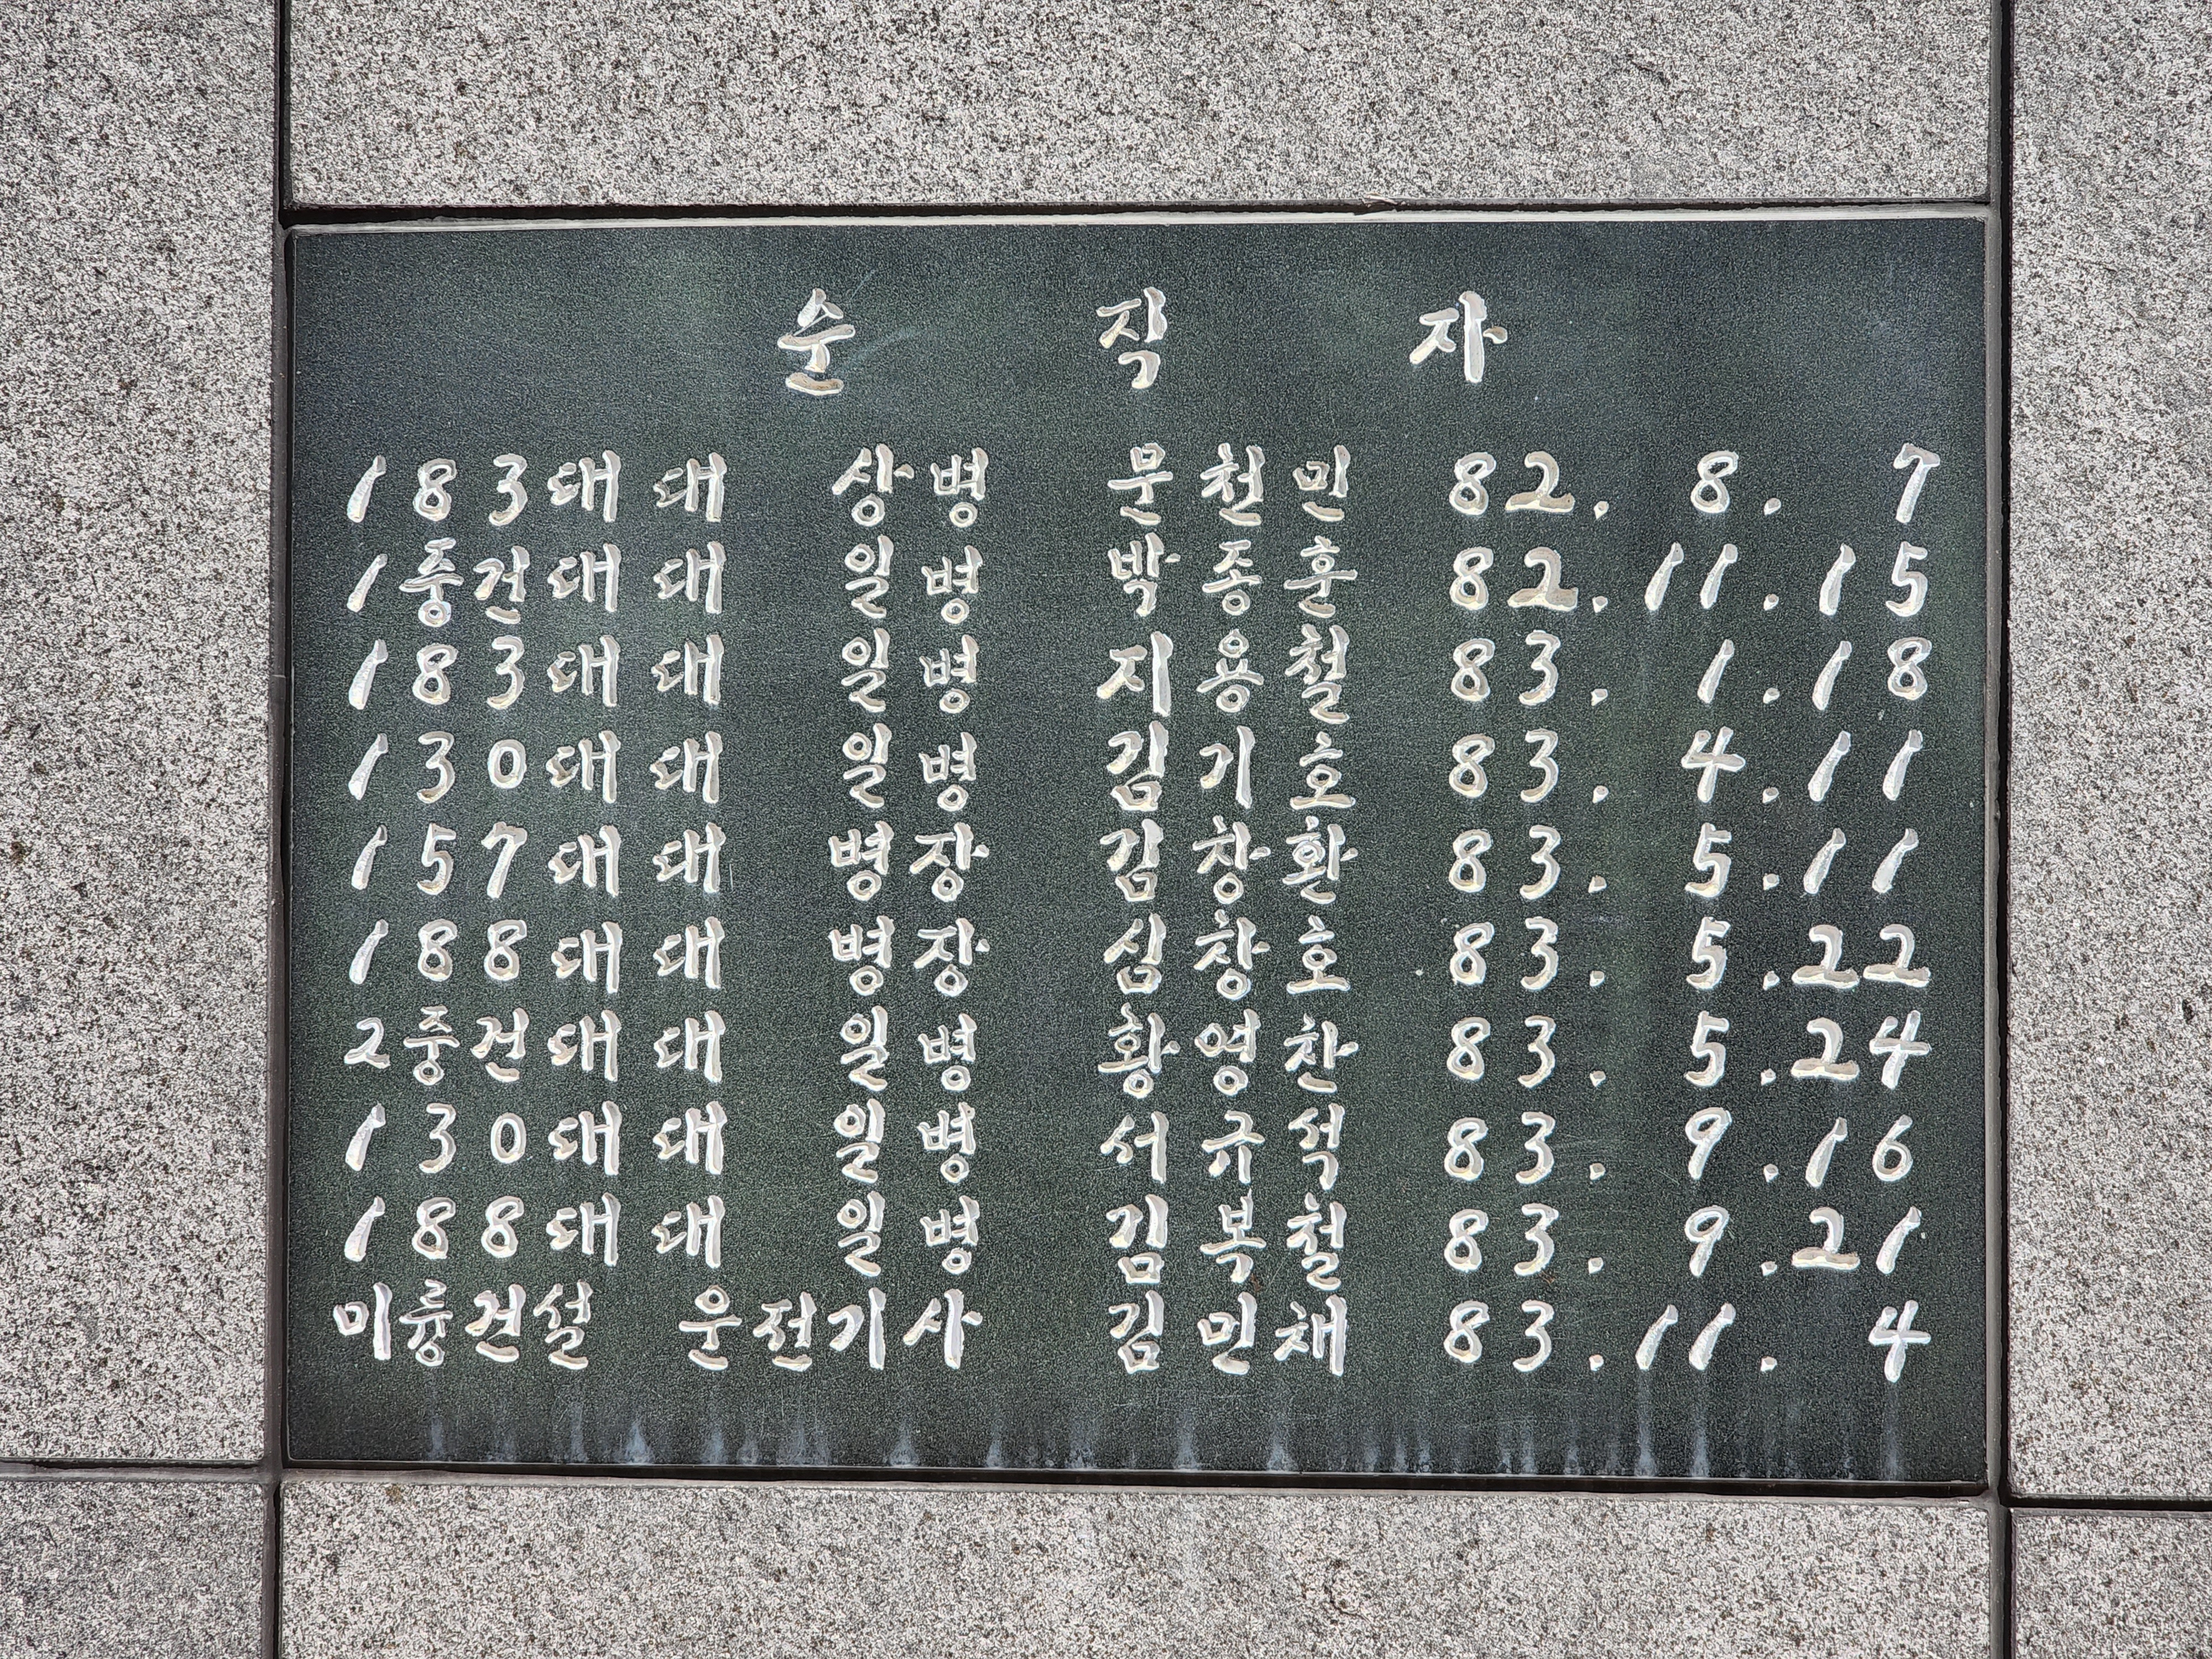 순 직 자
183대대 상병 문천민 82. 8. 7
1중건대대 일병 박종훈 82. 11. 15
183대대 일병 지용철 83. 1. 18
130대대 일병 김기호 83. 4. 11
157대대 병장 김창환 83. 5. 11
188대대 병장 심창호 83. 5. 22
2중건대대 일병 황영찬 83. 5. 24
130대대 일병 서규석 83. 9. 16
188대대 일병 김복철 83. 9. 21
미륭건설 운전기사 김민채 83. 11. 4